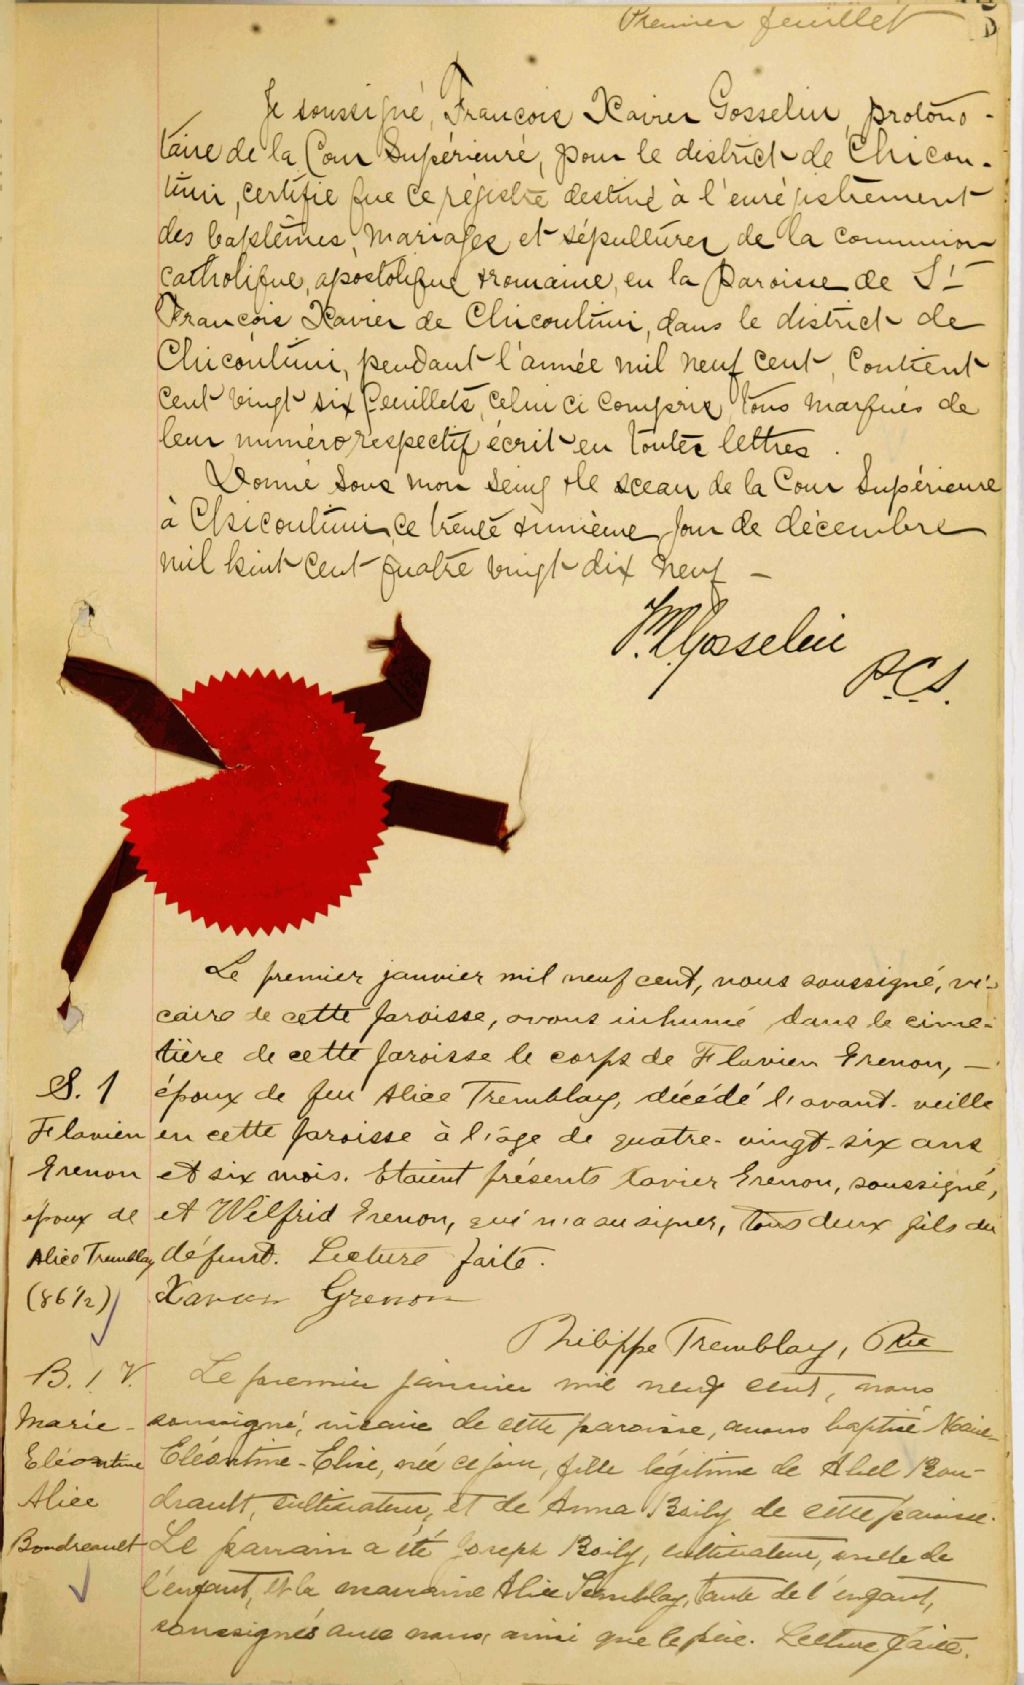 Premier feuillet
Je soussigné, François Xavier Gosselin, protono-
taire de la Cour Supérieure, pour le district de Chicou-
timi, certifie que ce régistre destiné à l'enrégistrement
des baptêmes, mariages et sépultures de la communion
catholique, apostolique & romaine, en la paroisse de St
François Xavier de Chicoutimi, dans le district de
Chicoutimi, pendant l'année mil neuf cent, contient
cent vingt six feuillets, celui ci compris, tous marqués de
leur numéro respectif écrit en toutes lettres.
Donné sous mon seing & le sceau de la Cour Supérieure
à Chicoutimi, ce trente & unième jour de décembre
mil huit cent quatre vingt dix neuf —
F. X. Gosselin
P.C.S.
Le premier janvier mil neuf cent, nous soussigné, vi-
caire de cette paroisse, avons inhumé dans le cime-
tière de cette paroisse le corps de Flavien Grenon, —
époux de feu Alice Tremblay, décédé l'avant-veille
en cette paroisse à l'âge de quatre-vingt-six ans
et six mois. Etaient présents Xavier Grenon, soussigné,
et Wilfrid Grenon, qui n'a su signer, tous deux fils du
défunt. Lecture faite.
Xavier Grenon
Philippe Tremblay, Ptre
S. 1
Flavien
Grenon
époux de
Alice Tremblay
(86 1/2)
Le premier janvier mil neuf cent, nous
soussigné, vicaire de cette paroisse, avons baptisé Marie-
Eléontine-Elise, née ce jour, fille légitime de Abel Bou-
drault, cultivateur, et de Anna Boily de cette paroisse.
Le parrain a été Joseph Boily, cultivateur, oncle de
l'enfant, et la marraine Alice Tremblay, tante de l'enfant,
soussignés avec nous, ainsi que le père. Lecture faite.
B. 1 V.
Marie-
Eléontine
Alice
Boudreault